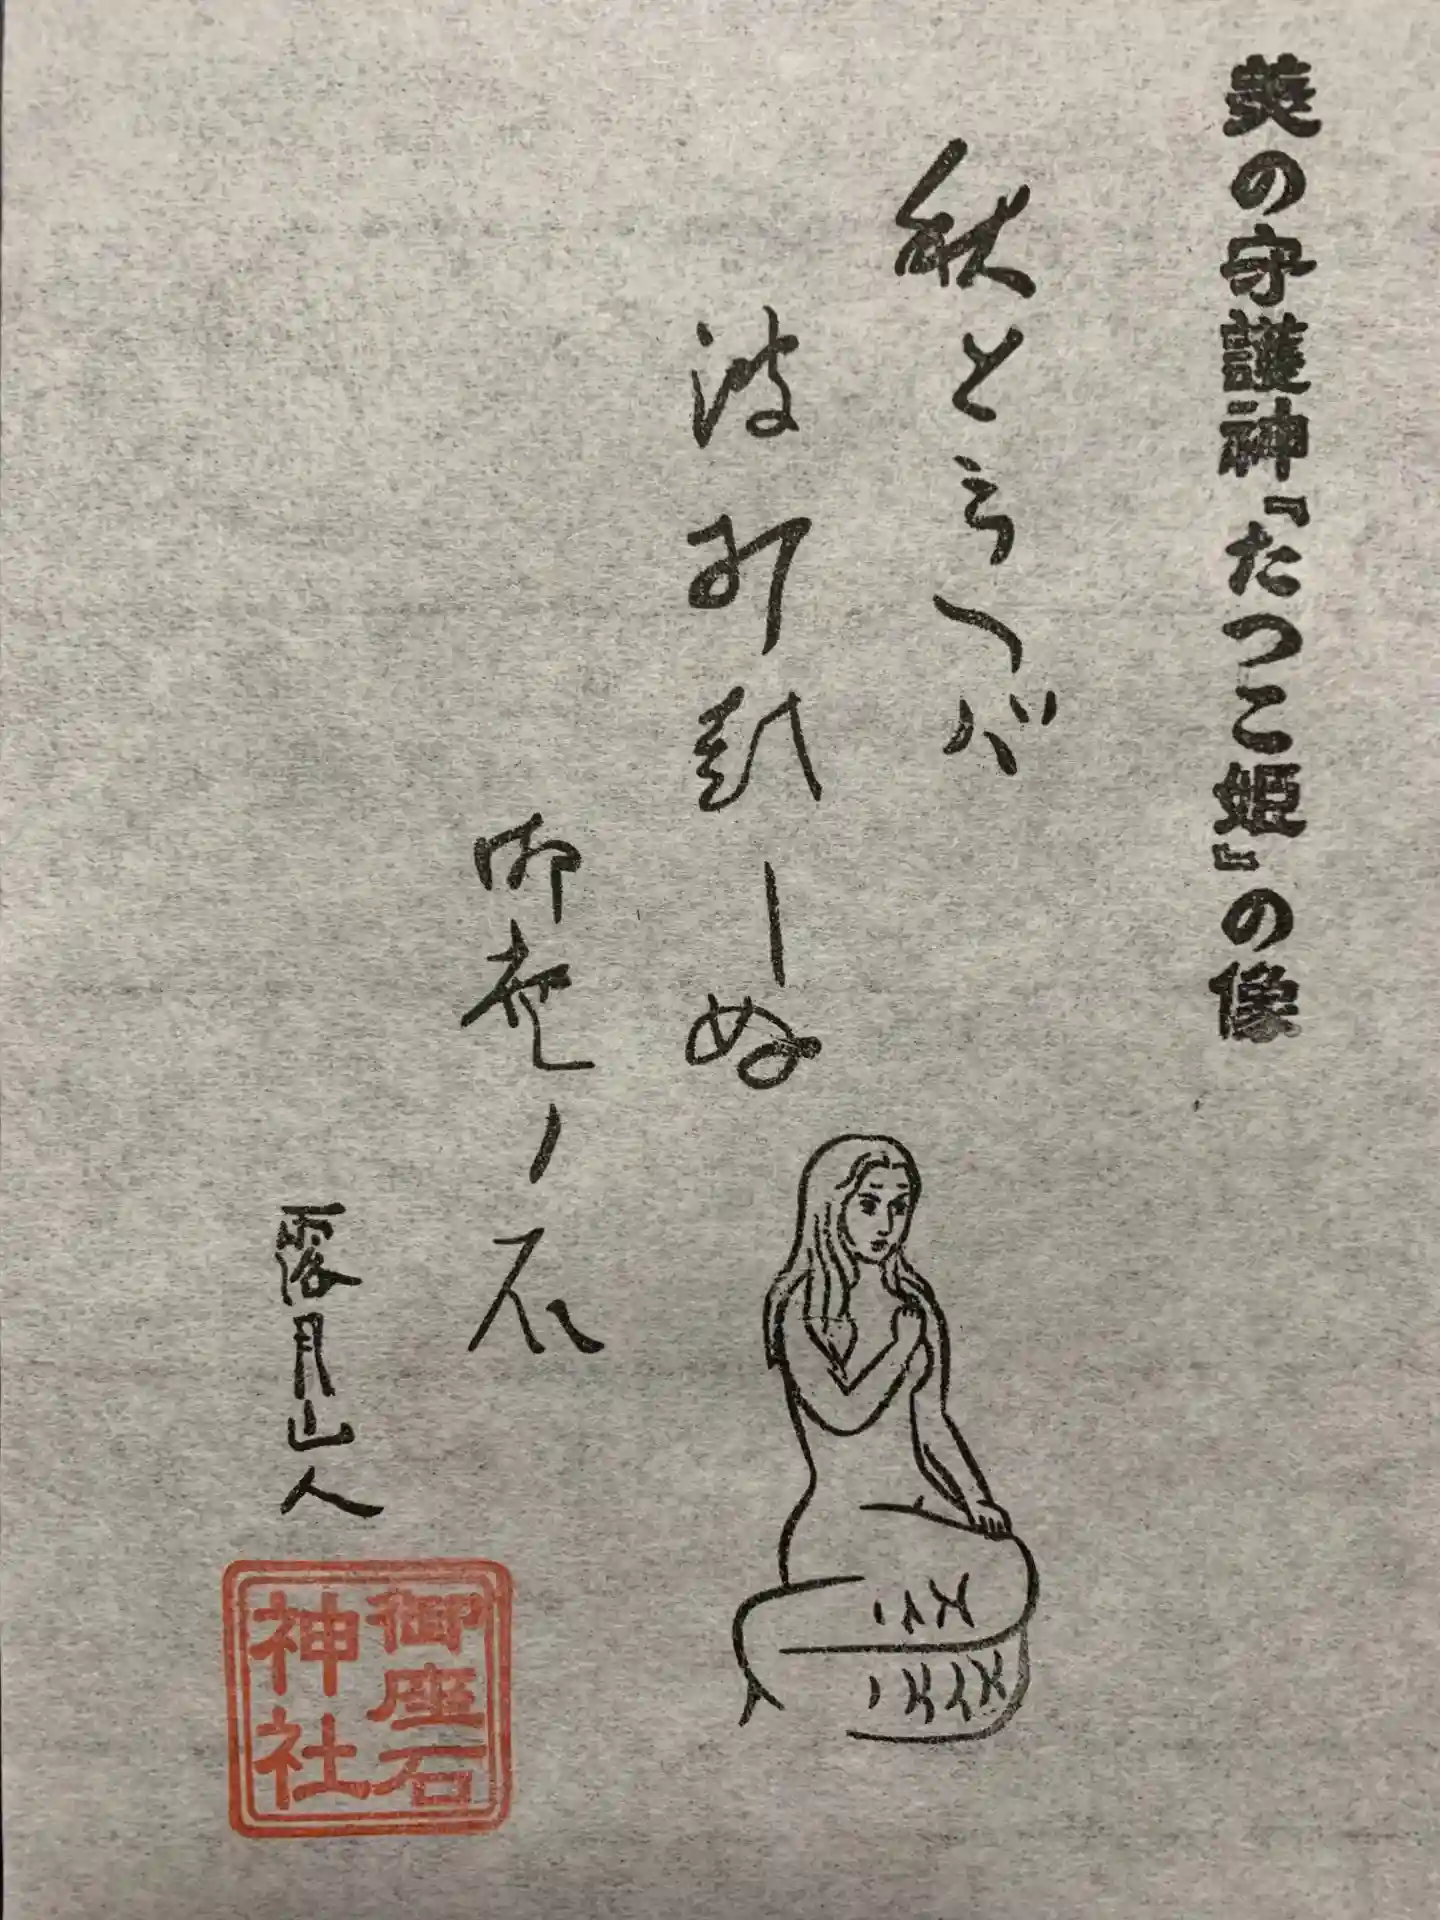 美の守護神『たつこ姫』の像
秋とらへバ
波
しぬ
御座ノ石
露月山人
御座石
神社